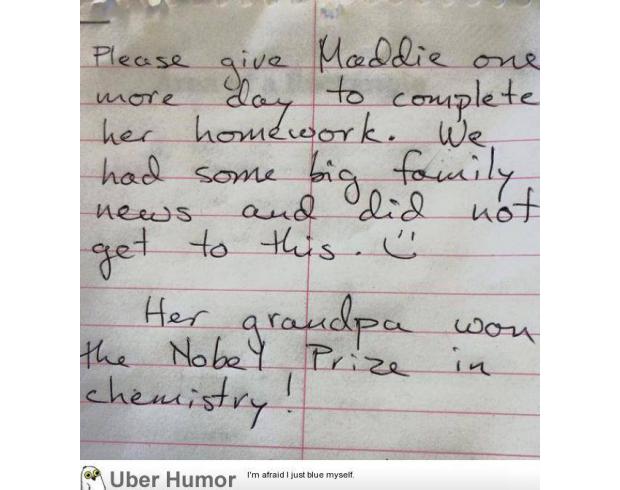 Please give Maddie one
more day to complete
her homework. We
had some big family
news and did not
get to this. ü
Her grandpa won
the Nobel Prize in
chemistry!
Uber Humor I'm afraid I just blue myself.